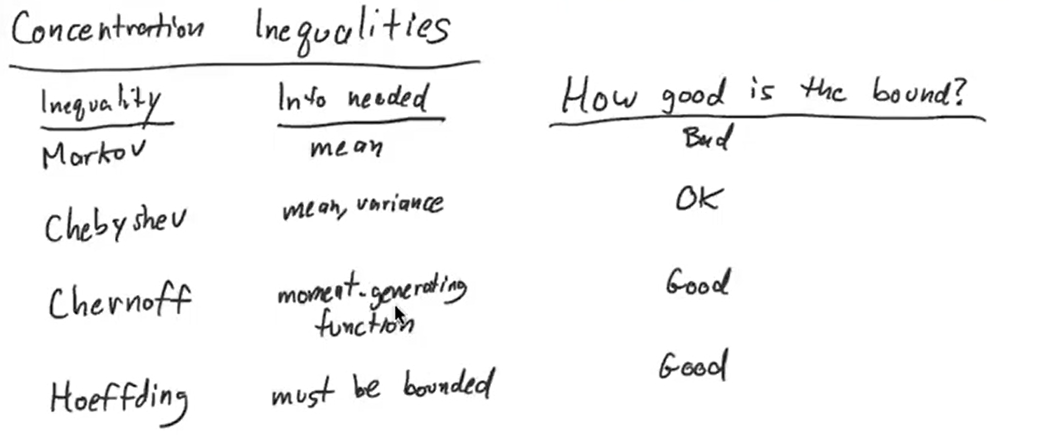 Concentration Inequalities
Inequality Info needed How good is the bound?
Markov mean Bad
Chebyshev mean, variance OK
Chernoff moment-generating function Good
Hoeffding must be bounded Good